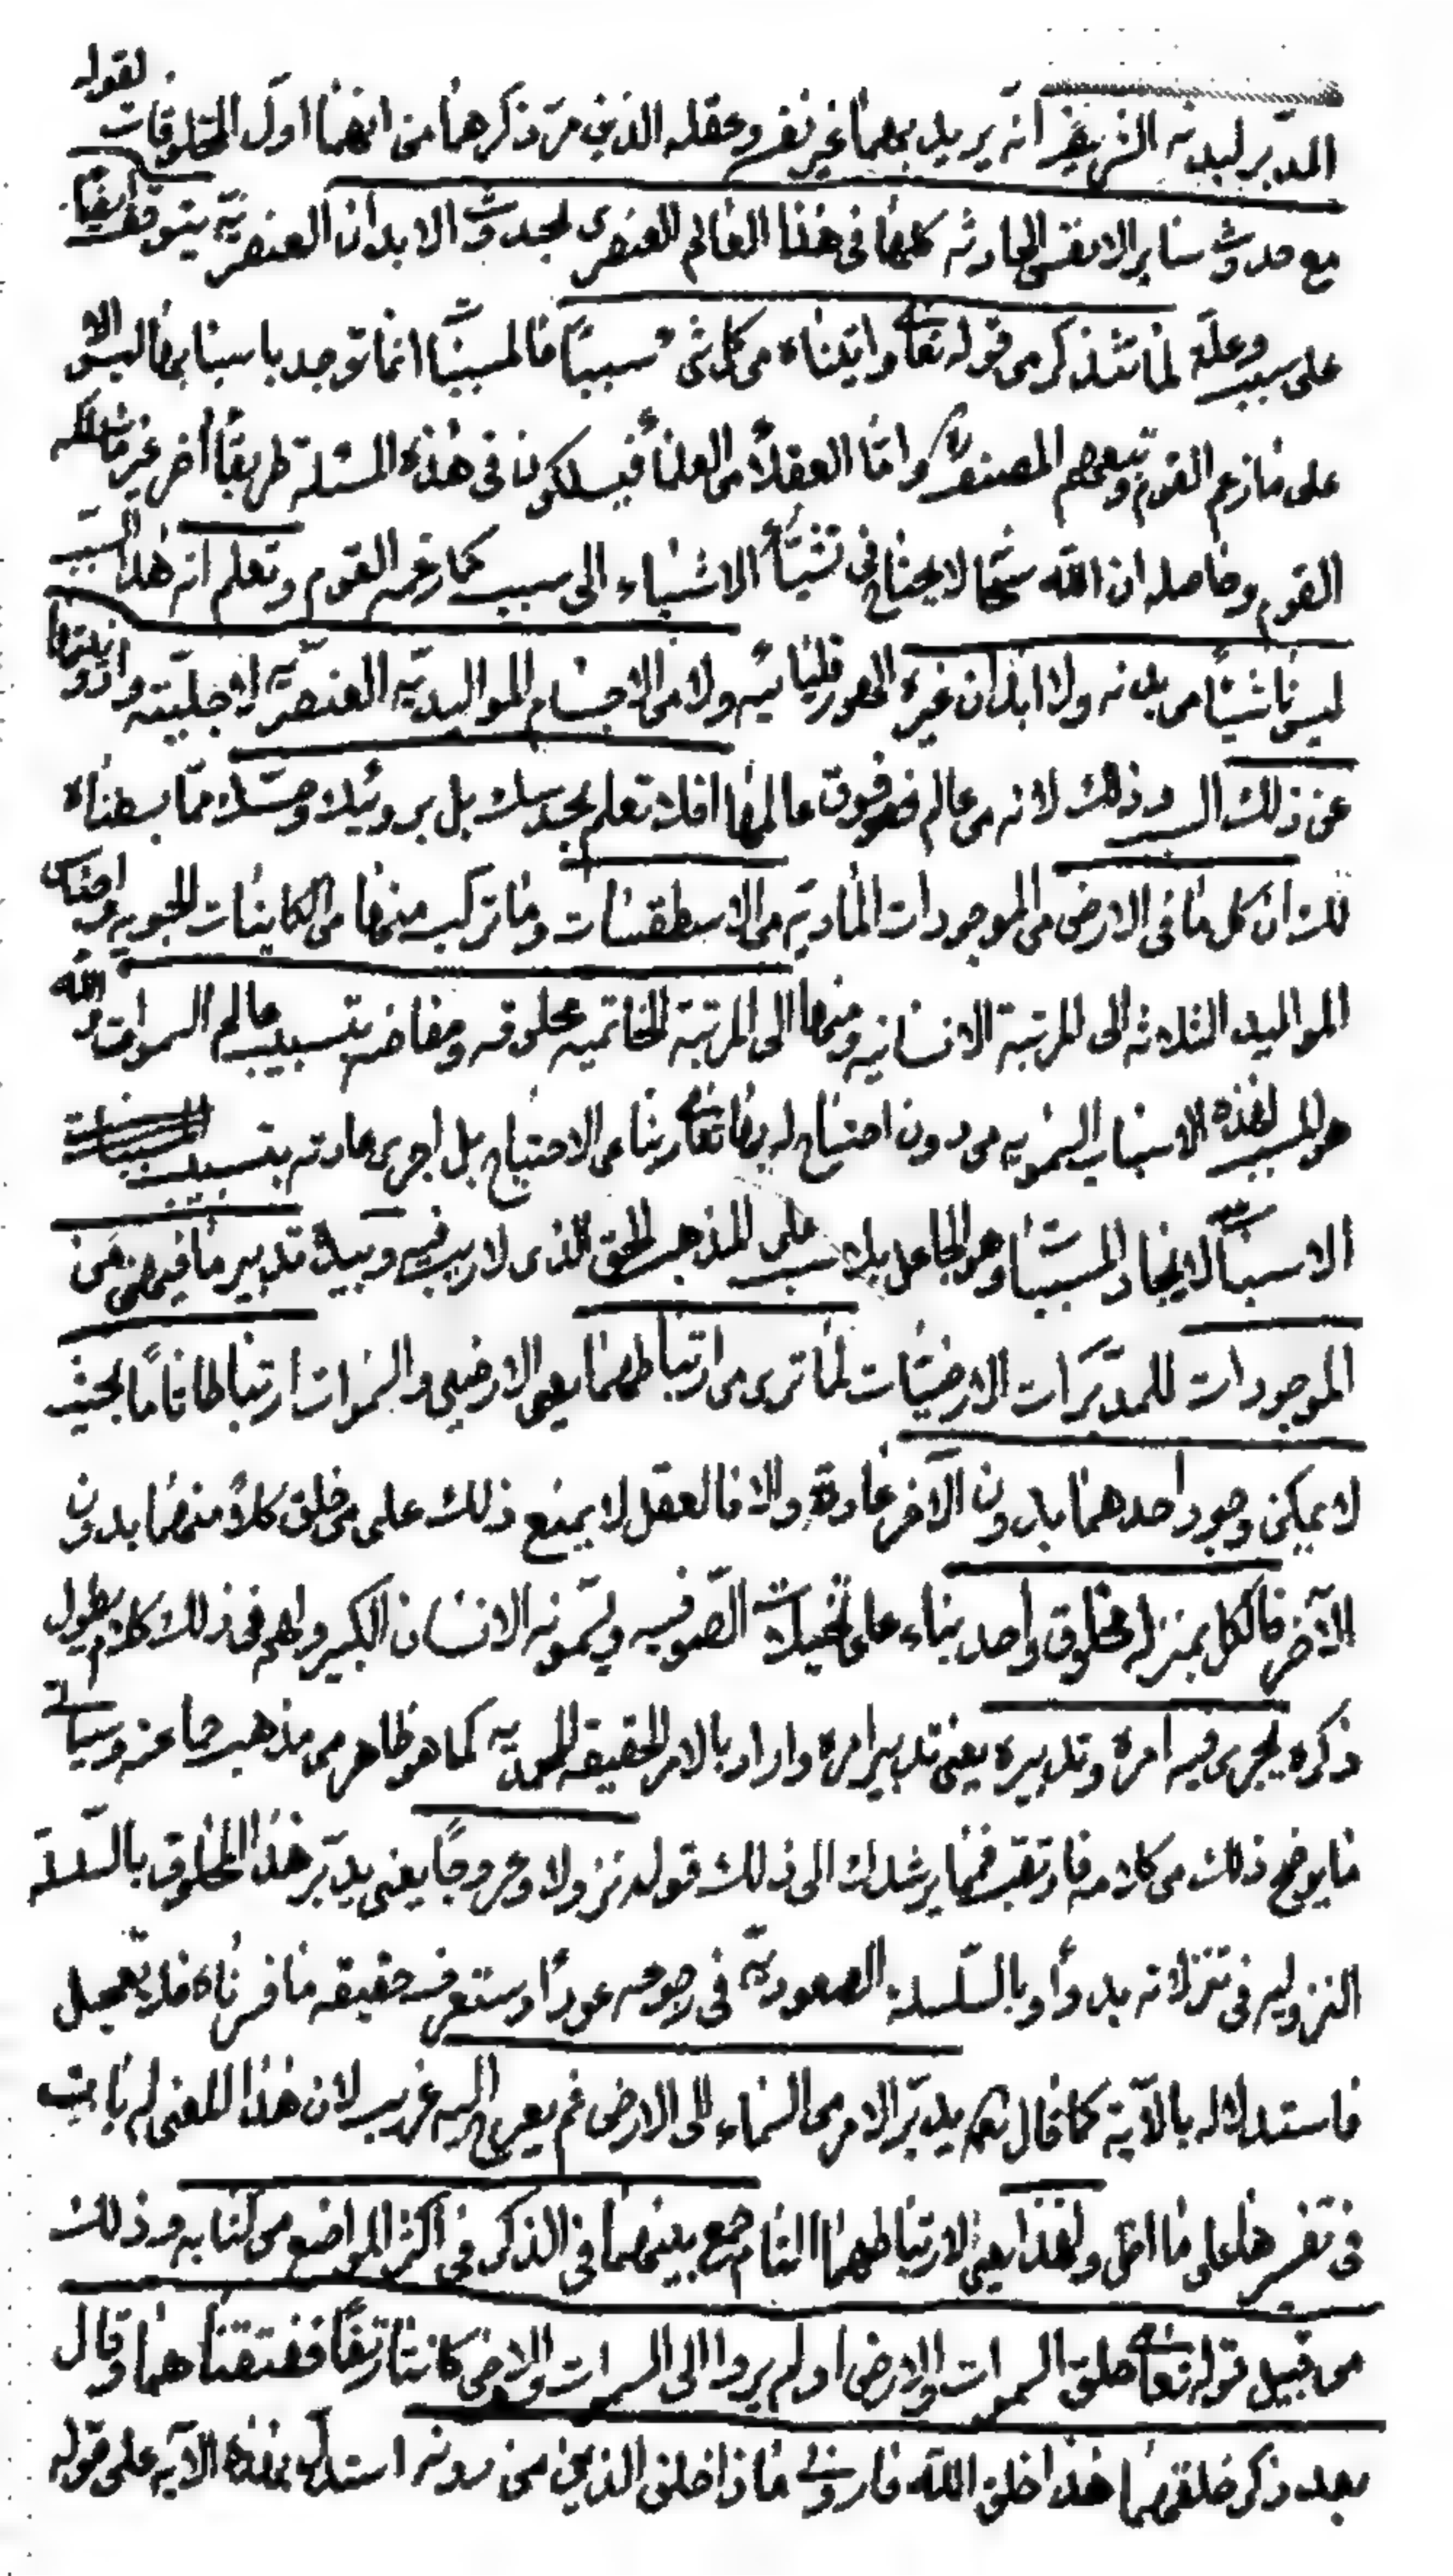 لقوله
المدبر لبدنه الشريف انه يريد بهما غير نفس وعقله الذين مرّ ذكرهما من انهما اول المخلوقات
مع حدوث ساير الانفس الحادثه كلها فى هذا العالم العنصرى بحدوث الابدان العنصريّة يتوقف ايضًا
على سبب وعلّة لما ستذكر من قوله تعا واتيناه من كل شىء سببًا فالمسببا انما توجد باسبابها
على ما زعم القوم وتبعهم المصنف واما العقلاء من العلماء فيسلكون فى هذه المسئلة طريقًا آخر غير
القوم وحاصله ان الله سبحا لا يحتاج فى الاشياء الى سبب كما زعمه القوم وتعلم انه هذا السبب
ليس ناشئًا من بدنه ولا ابدان غيره ولا من الاجسام المواليديّه العنصريّه لاجليته
عن ذلك السبب وذلك لانه من عالم فوق عالمها افلا تعلم بحدسك بل برويّتك وحسّك مما بسطناه
لك ان كل ما فى الارض من الموجودات الماديّه من الاسطقسات وما تركب منها من الكاينات الجويه
المواليد الثلاثه الى المرتبة الانسانيه ومنها الى المرتبة الخاتميه مخلوقه ومفاضه بتسبيب عالم السموات والله
هو المسبب لهذه الاسباب السمويه من دون احتياج له بها تعا ربنا عن الاحتياج بل اجرى عادته بتسبيب
الاسباب لايجاد المسببا وهو الجاعل بلا سبب على المذهب الحق الذى لا ريب فيه وبيده تدبير ما فيهن من
الموجودات للمدبّرات الارضيّات لما ترى من ارتباطهما يعنى الارضين والسموات ارتباطا تامًا بحيث
لا يمكن وجود احدهما بدون الآخر عادة والا فالعقل لا يمنع ذلك على من خلق كلاً منهما بدون
الآخر فالكل بمنزله مخلوق واحد بناء على تخيلات الصّوفيه ويسمونه الانسان الكبير ولهم فى ذلك كلام يطول
ذكره يجرى فيه امره وتدبيره يعنى تدبير امره واراد بالامر الحقيقه المحمديه كما هو ظاهر من مذهب جماعه وسياتى
ما يوضح ذلك من كلامه فارتقب فمما يرشدك الى ذلك قوله نزولا وعروجًا يعنى يدبّر هذا المخلوق بالسّلسلة
النزوليه فى تنزلاته بدءًا وبالسّلسلة الصعوديّة فى رجوعه عودًا وستعرف حقيقه ما فسرناه فلا تعجل
فاستدلاله بالآية كما قال تع يدبّر الامر من السماء الى الارض ثم يعرج اليه غريب لان هذا المعنى لم يات
فى تفسيرها على ما اظن ولهذا يعنى لارتباطهما التام جمع بينهما فى الذكر فى اكثر المواضع من كتابه وذلك
من قبيل قوله تعا خلق السموات والارض اولم يروا الى السموات والارض كانتا رتقًا ففتقناهما وقال
بعد ذكر خلقهما هذا خلق الله فارونى ماذا خلق الذين من دونه استدل بهذه الآيه على قوله